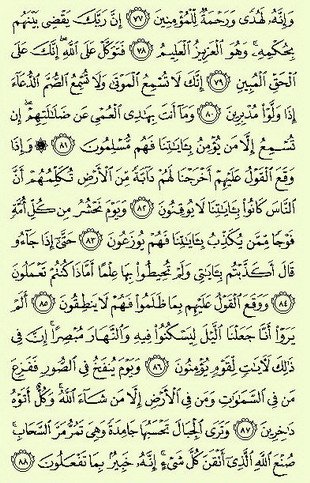 وَإِنَّهُۥ لَهُدًى وَرَحْمَةٌ لِّلْمُؤْمِنِينَ ٧٧ إِنَّ رَبَّكَ يَقْضِى بَيْنَهُم
بِحُكْمِهِۦ وَهُوَ ٱلْعَزِيزُ ٱلْعَلِيمُ ٧٨ فَتَوَكَّلْ عَلَى ٱللَّهِ إِنَّكَ عَلَى
ٱلْحَقِّ ٱلْمُبِينِ ٧٩ إِنَّكَ لَا تُسْمِعُ ٱلْمَوْتَىٰ وَلَا تُسْمِعُ ٱلصُّمَّ ٱلدُّعَآءَ
إِذَا وَلَّوْا۟ مُدْبِرِينَ ٨٠ وَمَآ أَنتَ بِهَـٰدِى ٱلْعُمْىِ عَن ضَلَـٰلَتِهِمْ إِن
تُسْمِعُ إِلَّا مَن يُؤْمِنُ بِـَٔايَـٰتِنَا فَهُم مُّسْلِمُونَ ٨١ ۞ وَإِذَا
وَقَعَ ٱلْقَوْلُ عَلَيْهِمْ أَخْرَجْنَا لَهُمْ دَآبَّةً مِّنَ ٱلْأَرْضِ تُكَلِّمُهُمْ أَنَّ
ٱلنَّاسَ كَانُوا۟ بِـَٔايَـٰتِنَا لَا يُوقِنُونَ ٨٢ وَيَوْمَ نَحْشُرُ مِن كُلِّ أُمَّةٍ
فَوْجًا مِّمَّن يُكَذِّبُ بِـَٔايَـٰتِنَا فَهُمْ يُوزَعُونَ ٨٣ حَتَّىٰٓ إِذَا جَآءُو
قَالَ أَكَذَّبْتُم بِـَٔايَـٰتِى وَلَمْ تُحِيطُوا۟ بِهَا عِلْمًا أَمَّاذَا كُنتُمْ تَعْمَلُونَ
٨٤ وَوَقَعَ ٱلْقَوْلُ عَلَيْهِم بِمَا ظَلَمُوا۟ فَهُمْ لَا يَنطِقُونَ ٨٥ أَلَمْ
يَرَوْا۟ أَنَّا جَعَلْنَا ٱلَّيْلَ لِيَسْكُنُوا۟ فِيهِ وَٱلنَّهَارَ مُبْصِرًا إِنَّ فِى
ذَٰلِكَ لَـَٔايَـٰتٍ لِّقَوْمٍ يُؤْمِنُونَ ٨٦ وَيَوْمَ يُنفَخُ فِى ٱلصُّورِ فَفَزِعَ
مَن فِى ٱلسَّمَـٰوَٰتِ وَمَن فِى ٱلْأَرْضِ إِلَّا مَن شَآءَ ٱللَّهُ وَكُلٌّ أَتَوْهُ
دَٰخِرِينَ ٨٧ وَتَرَى ٱلْجِبَالَ تَحْسَبُهَا جَامِدَةً وَهِىَ تَمُرُّ مَرَّ ٱلسَّحَابِ
صُنْعَ ٱللَّهِ ٱلَّذِىٓ أَتْقَنَ كُلَّ شَىْءٍ إِنَّهُۥ خَبِيرٌۢ بِمَا تَفْعَلُونَ ٨٨